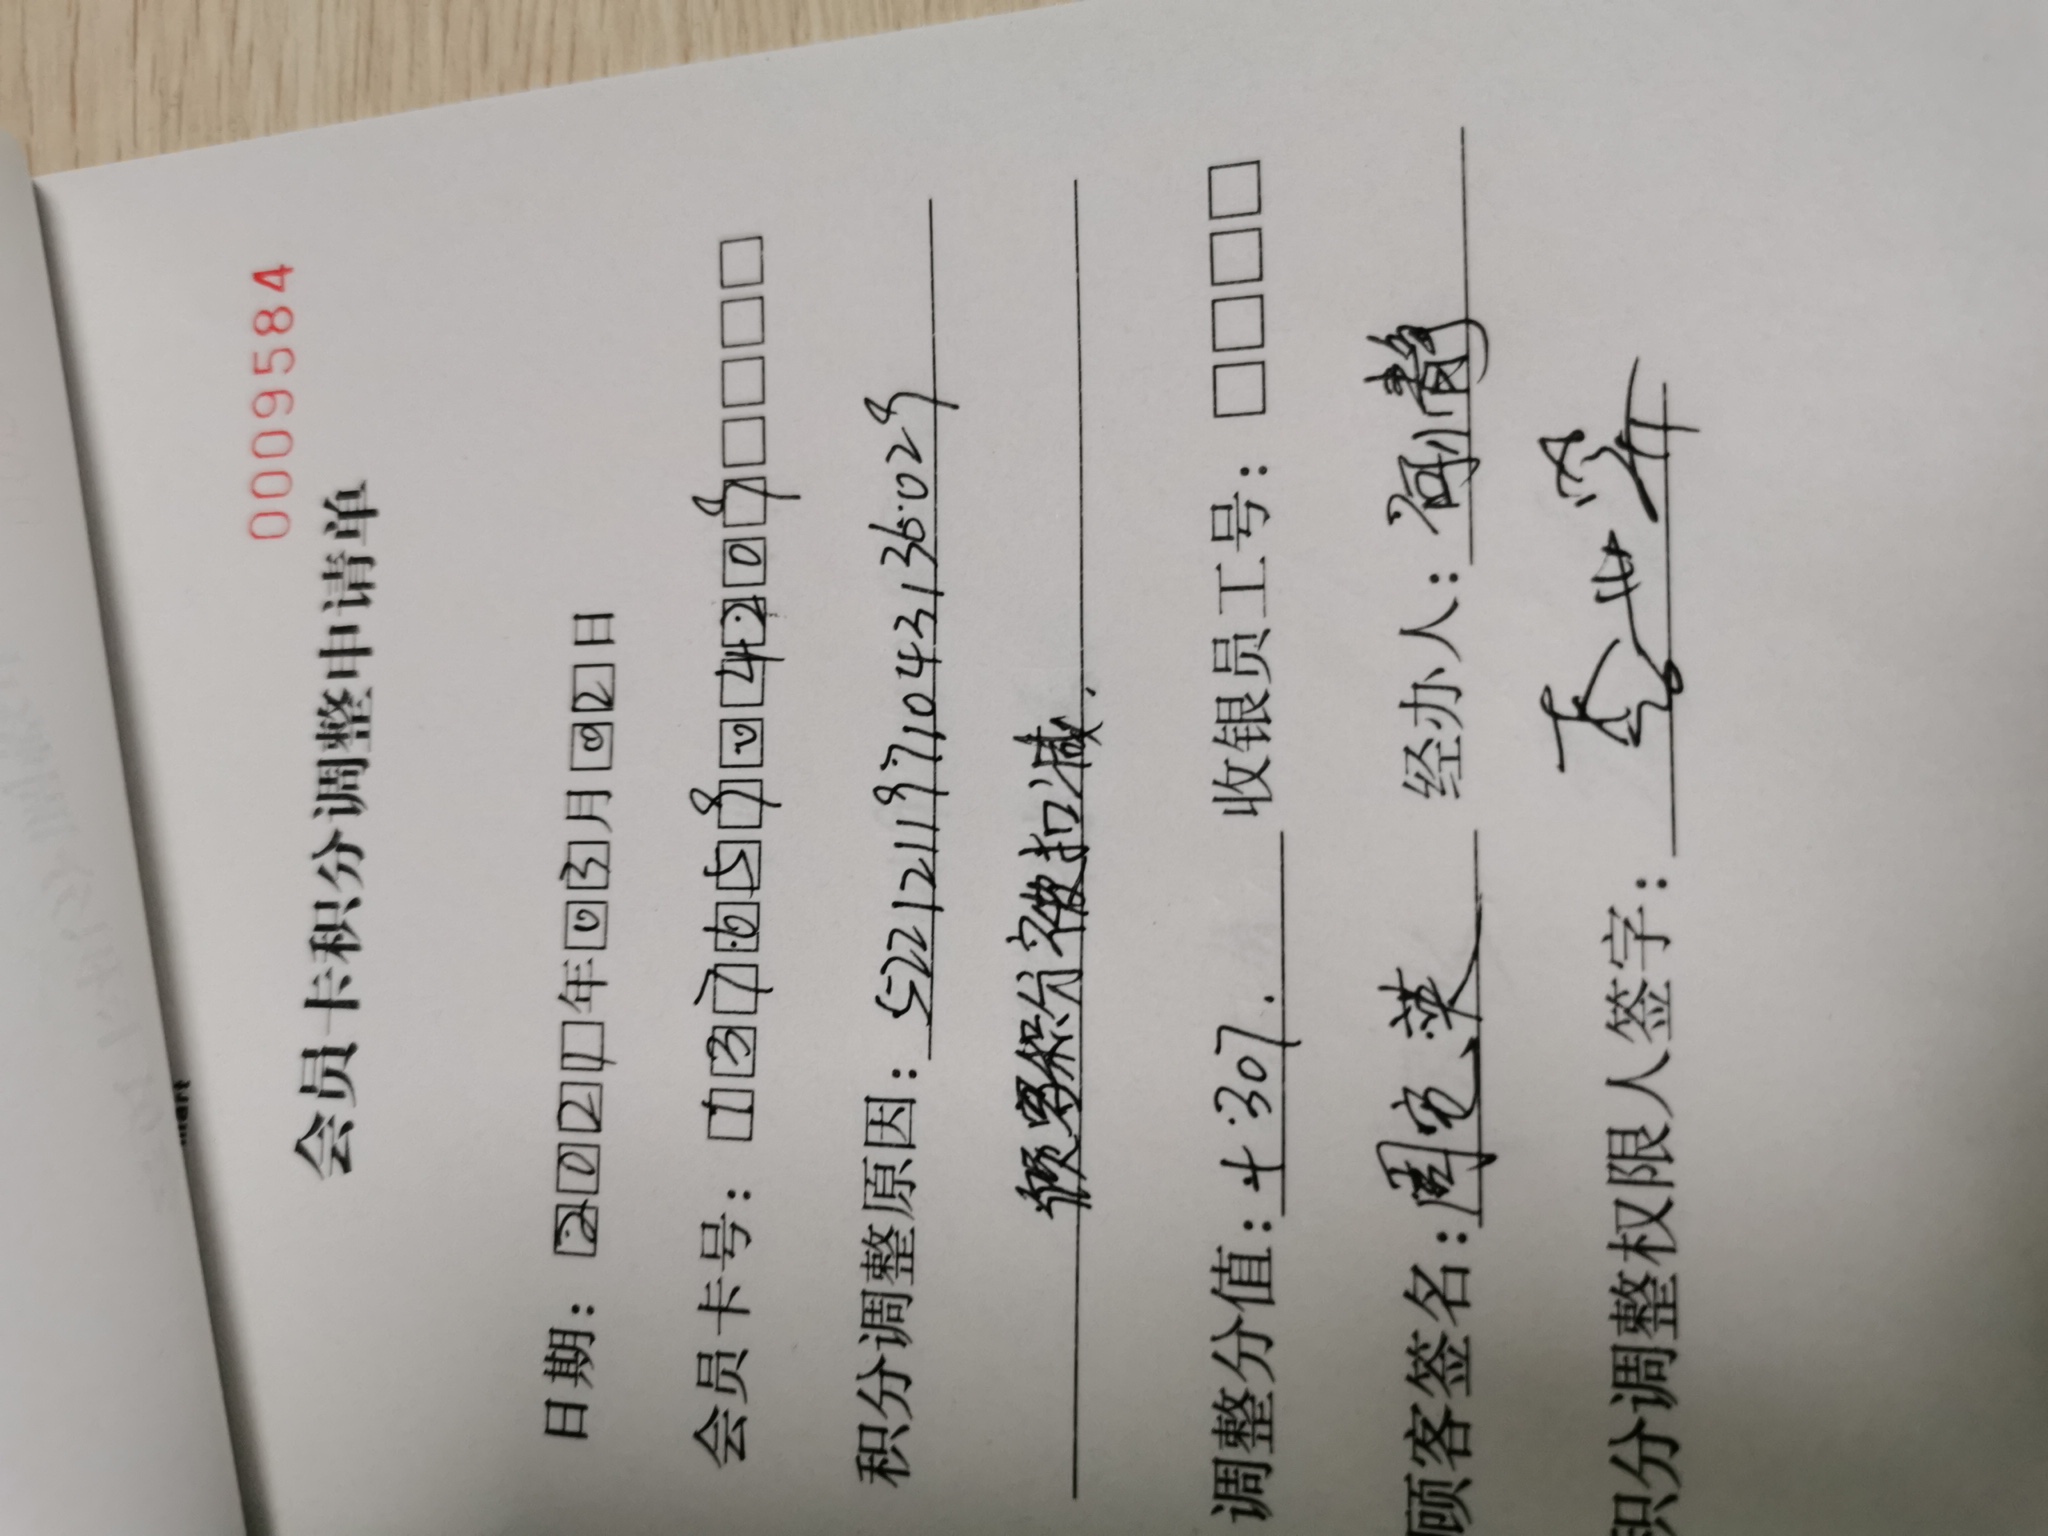 0009584
会员卡积分调整申请单
日期：2021年03月02日
会员卡号：13765904209
积分调整原因：5221211971043136029
积分被扣减.
调整分值：+307. 收银员工号：□□□□
顾客签名：周 英 经办人：
积分调整权限人签字：